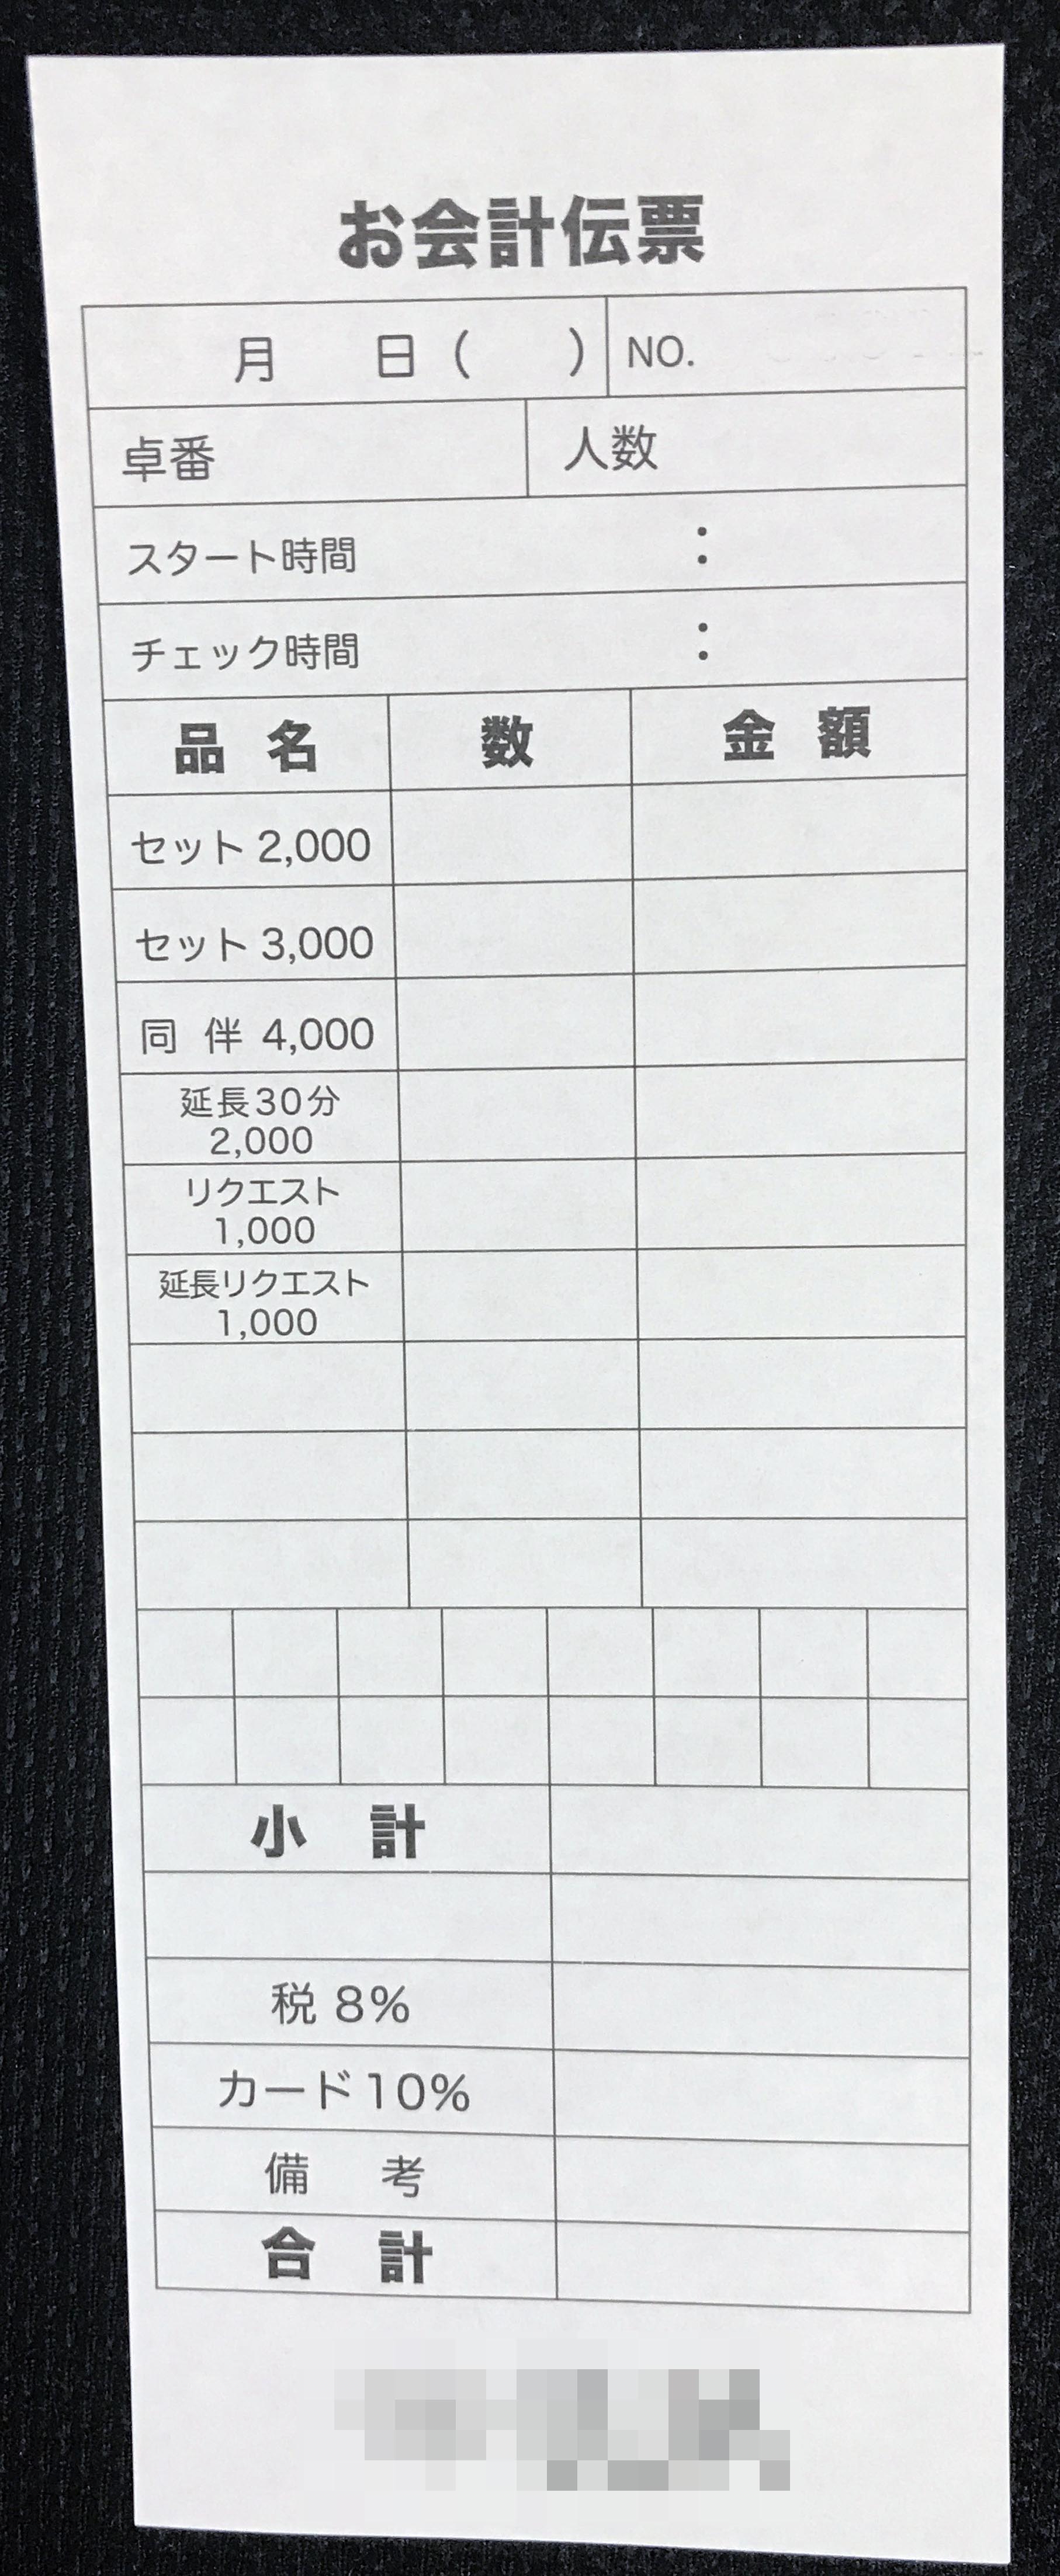 お会計伝票
月 日( ) NO.
卓番 人数
スタート時間 :
チェック時間 :
品 名 数 金 額
セット 2,000
セット 3,000
同 伴 4,000
延長30分
2,000
リクエスト
1,000
延長リクエスト
1,000
小 計
税 8%
カード10%
備 考
合 計